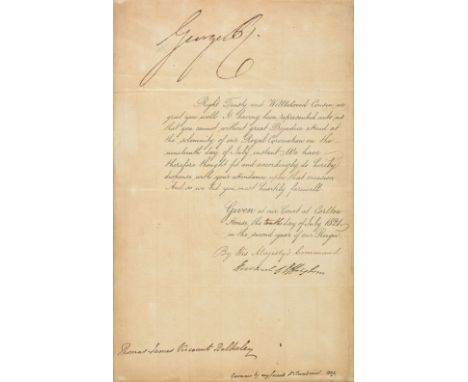 George R.
Right Trusty and Wellbeloved Cousin, we
greet you well. It having been represented unto us
that you cannot without great Prejudice attend at
the solemnity of our Royal Coronation on the
nineteenth day of July instant. We have
therefore thought fit and accordingly do hereby
dispense with your attendance upon that occasion
And so we bid you most heartily farewell.
Given at our Court at Carlton
House, the tenth day of July 1821.
in the second year of our Reign.
By His Majesty's Command
Howard of Effingham
Thomas James Viscount Bulkeley
by my friend 1822